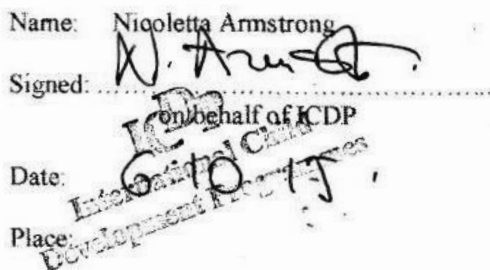 Name: Nicoletta Armstrong
Signed: N. Armst
on behalf of ICDP
ICDP
Date: 6 10 15.
International Child
Development Programmes
Place: